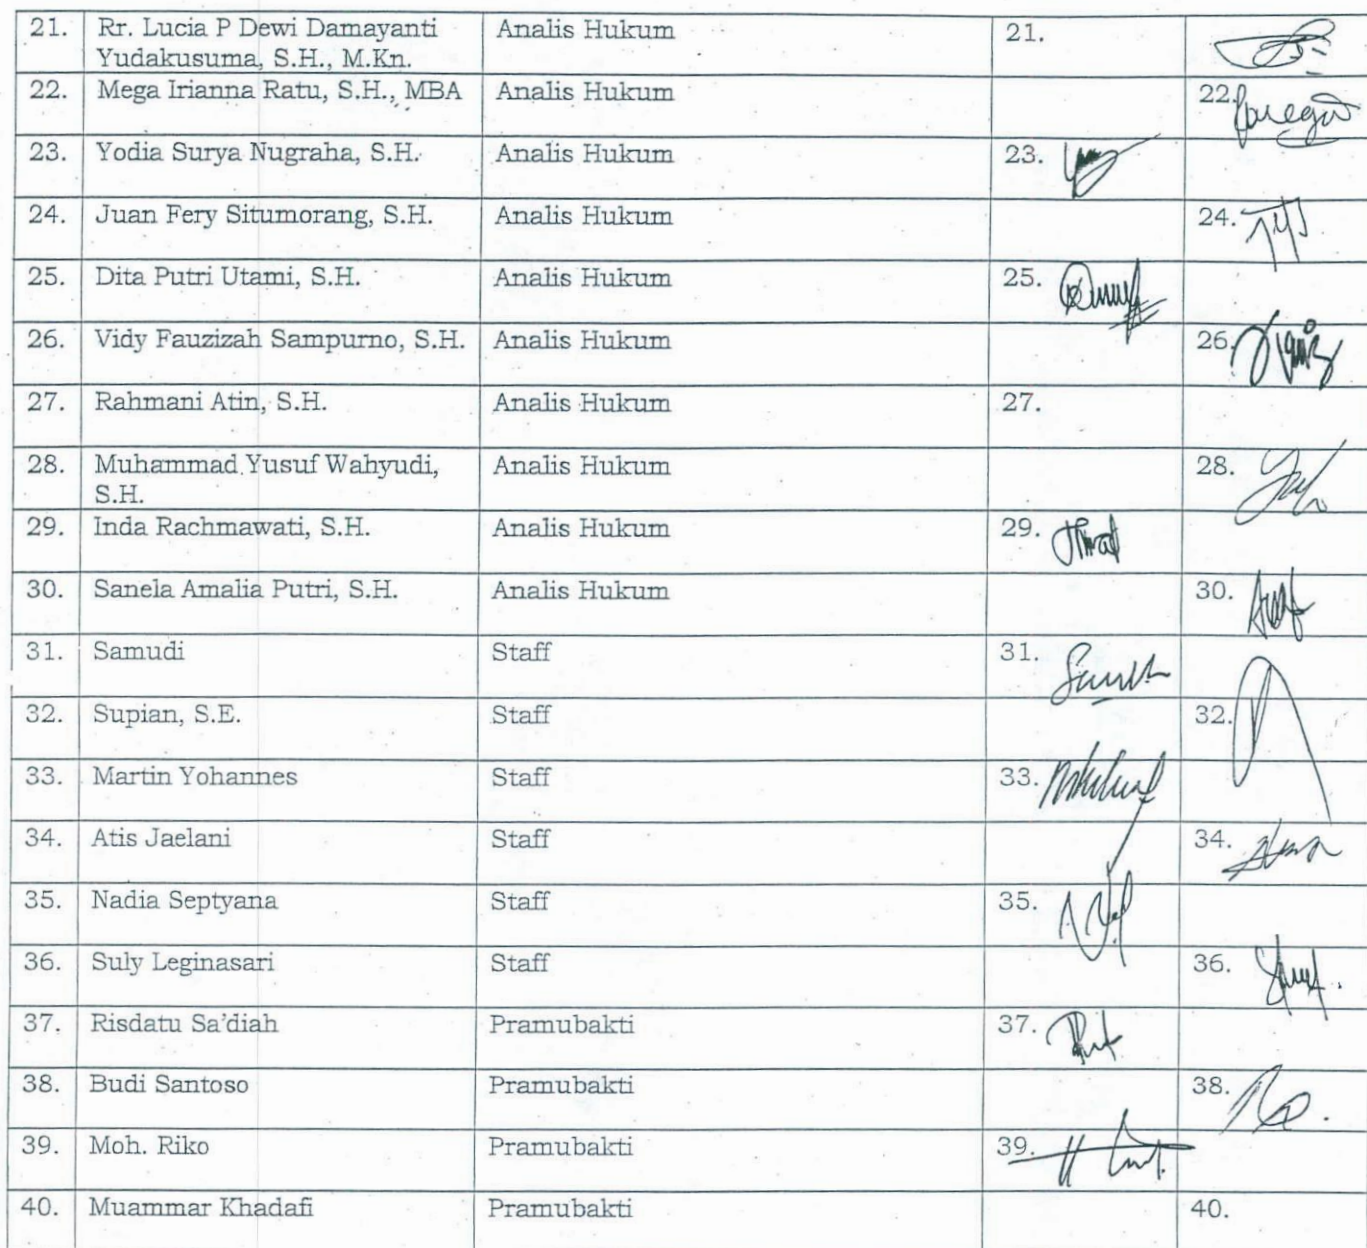 21. Rr. Lucia P Dewi Damayanti Analis Hukum 21.
Yudakusuma, S.H., M.Kn.
22. Mega Irianna Ratu, S.H., MBA Analis Hukum 22.
23. Yodia Surya Nugraha, S.H. Analis Hukum 23.
24. Juan Fery Situmorang, S.H. Analis Hukum 24.
25. Dita Putri Utami, S.H. Analis Hukum 25.
26. Vidy Fauzizah Sampurno, S.H. Analis Hukum 26.
27. Rahmani Atin, S.H. Analis Hukum 27.
28. Muhammad Yusuf Wahyudi, Analis Hukum 28.
S.H.
29. Inda Rachmawati, S.H. Analis Hukum 29.
30. Sanela Amalia Putri, S.H. Analis Hukum 30.
31. Samudi Staff 31.
32. Supian, S.E. Staff 32.
33. Martin Yohannes Staff 33.
34. Atis Jaelani Staff 34.
35. Nadia Septyana Staff 35.
36. Suly Leginasari Staff 36.
37. Risdatu Sa'diah Pramubakti 37.
38. Budi Santoso Pramubakti 38.
39. Moh. Riko Pramubakti 39.
40. Muammar Khadafi Pramubakti 40.